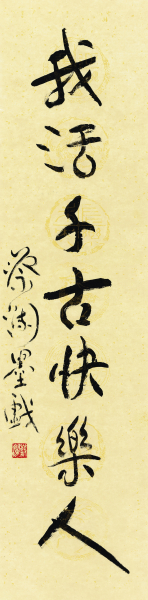 我活千古快樂人
蔡瀾墨戲